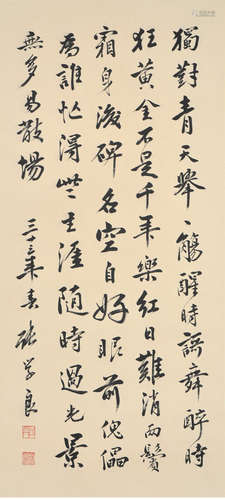 獨對青天舉一觴醒時謌舞醉時
狂黃金不是千年業紅日難消兩鬢
霜身後碑名空自好眼前傀儡
為誰忙得些生涯隨時過光景
無多易散場
三十三年春 張学良